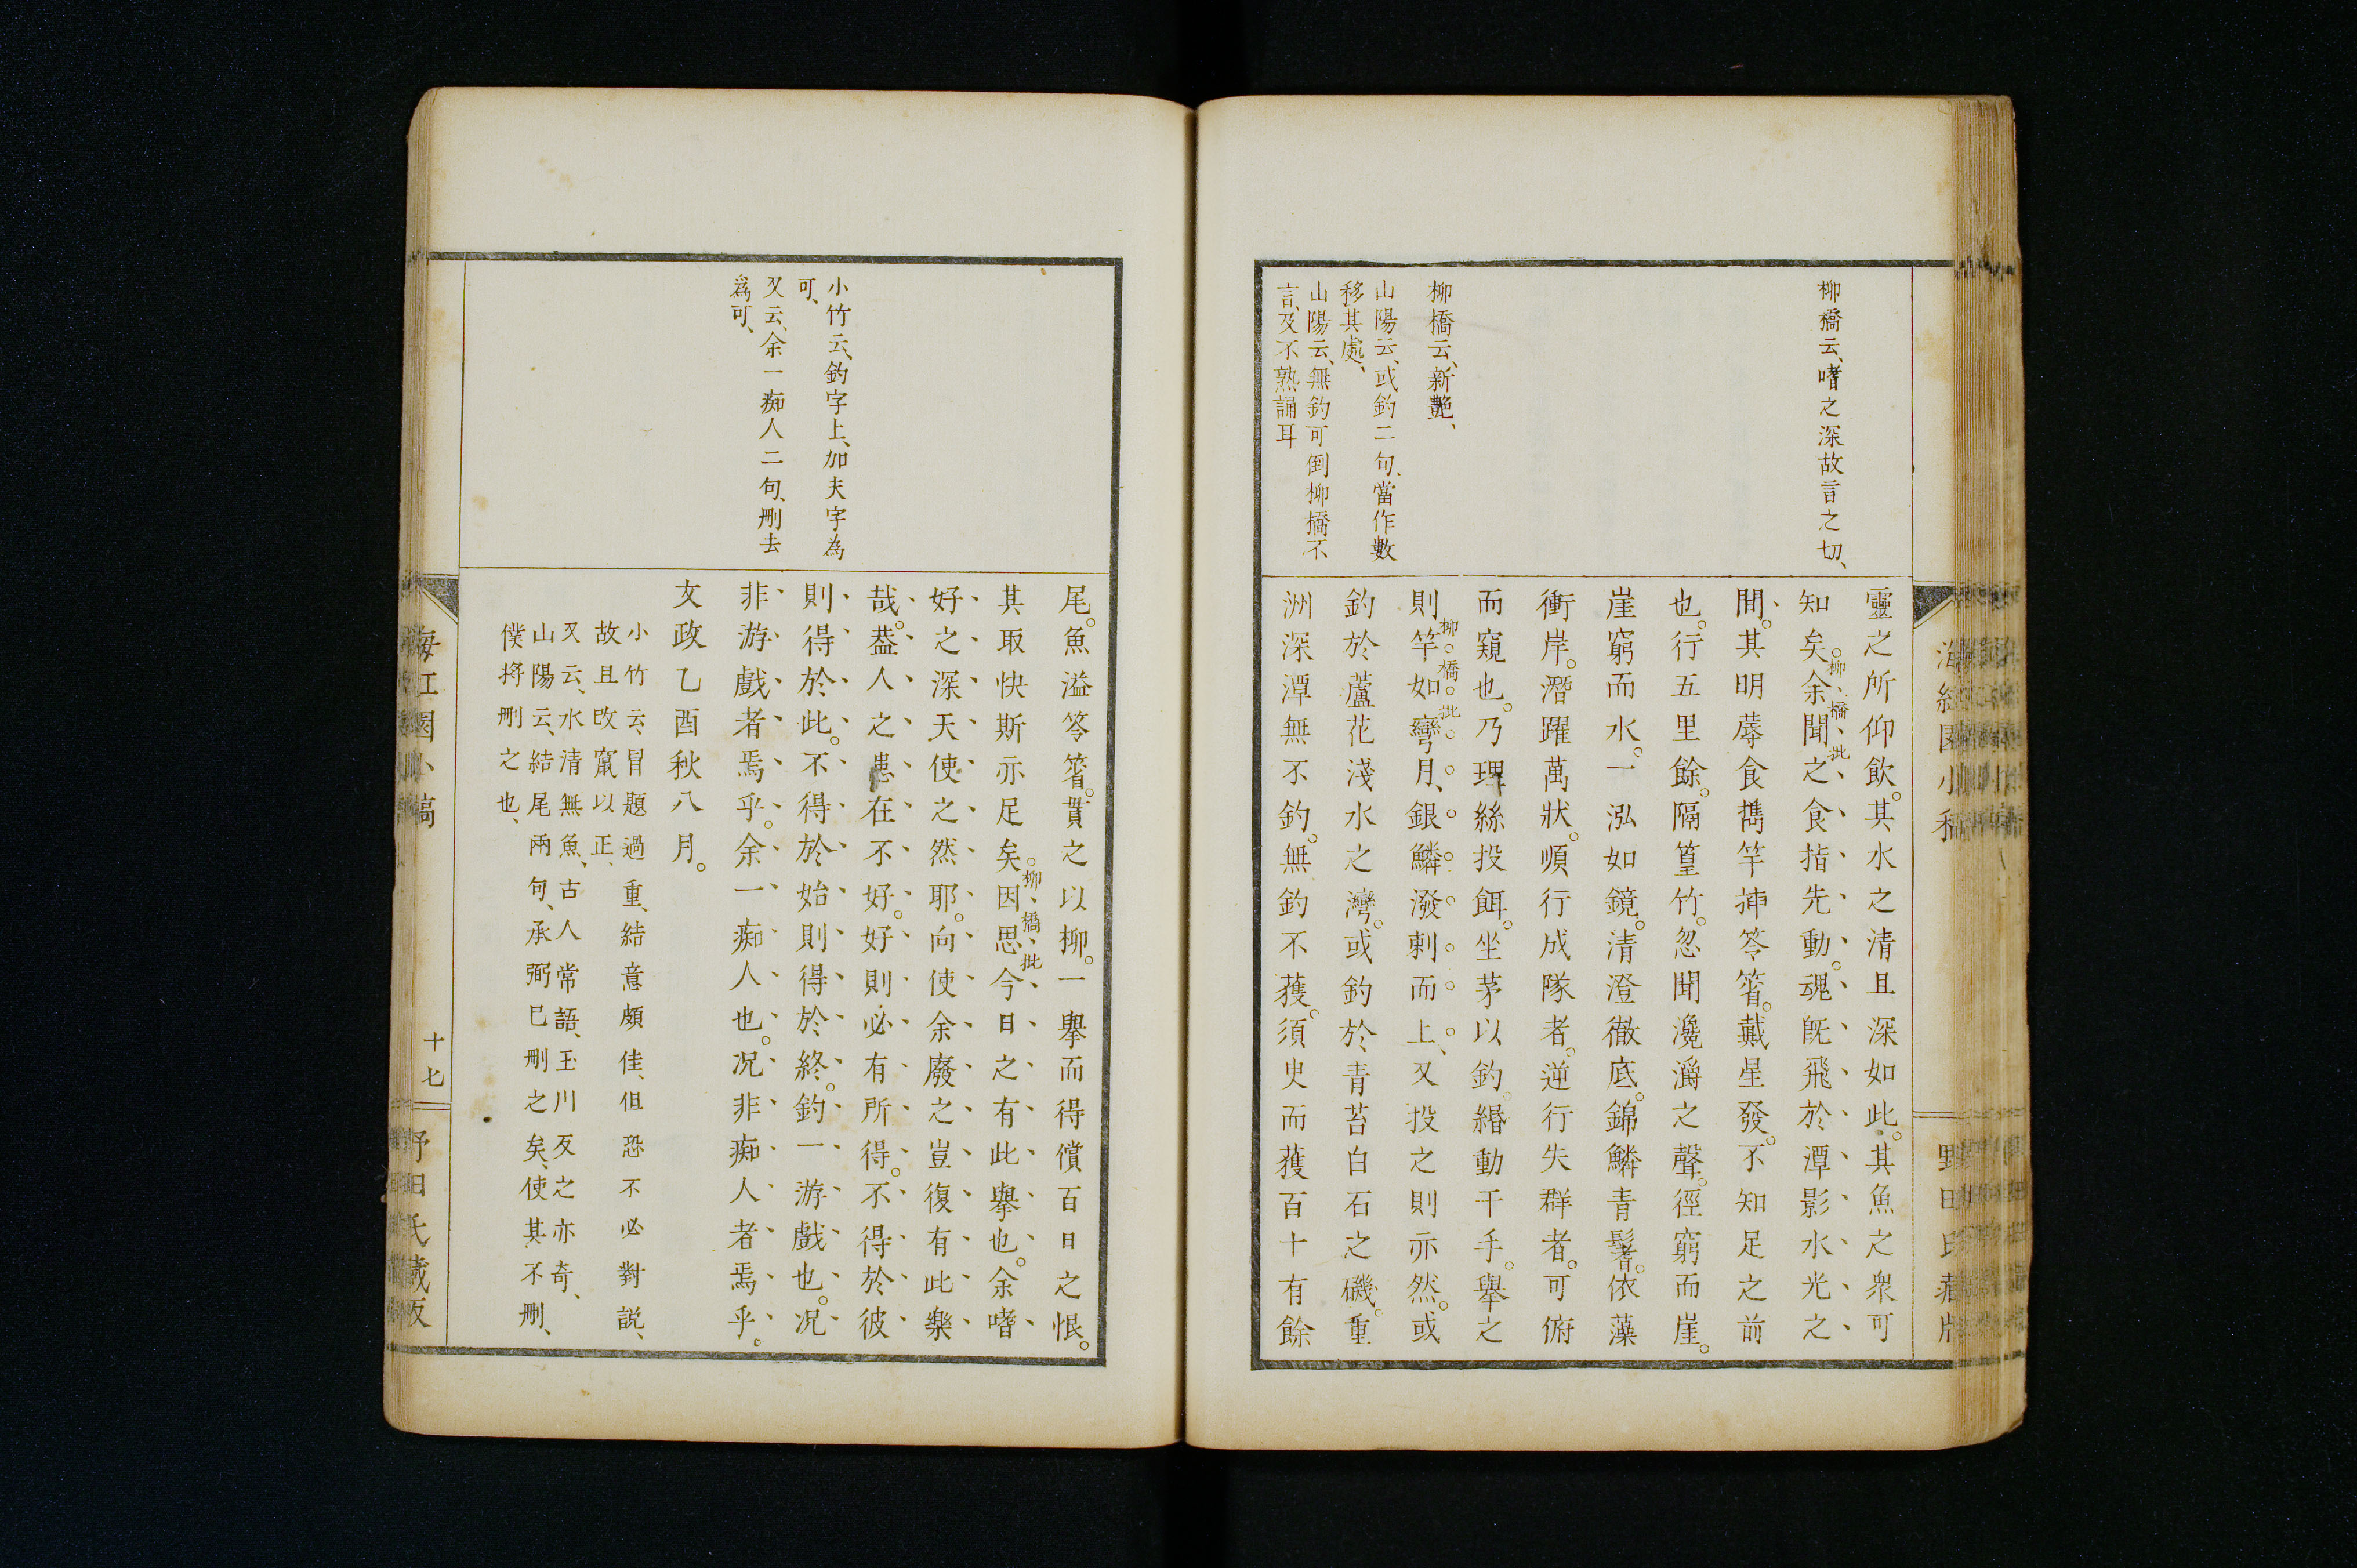 柳橋云、嗜之深故言之切、
柳橋云、新艶、
山陽云、或釣二句、當作數
移其處、
山陽云、無釣可倒柳橋不
言、及不熟誦耳
靈之所仰飲。其水之清且深如此。其魚之衆可
知矣。余聞之食指先動。魂旣飛於潭影水光之
柳橋批
間。其明蓐食擕竿揷笭箵。戴星發。不知足之前
也。行五里餘。隔篁竹。忽聞瀺灂之聲。徑窮而崖。
崖窮而水。一泓如鏡。清澄徹底。錦鱗青鬐。依藻
衝岸。潛躍萬狀。順行成隊者。逆行失群者。可俯
而窺也。乃理絲投餌。坐茅以釣。緡動于手。舉之
則竿如彎月、銀鱗潑剌而上、又投之則亦然。或
柳橋批
釣於蘆花淺水之灣。或釣於青苔白石之磯。重
洲深潭無不釣。無釣不獲。須臾而獲百十有餘
野田氏藏
小竹云、釣字上、加夫字為
可、
又云、余一痴人二句、刪去
爲可、
尾。魚溢笭箵。貫之以柳。一舉而得償百日之恨。
其取快斯亦足矣。因思今日之有此擧也。余嗜
柳橋批
好之深天使之然耶。向使余廢之豈復有此樂
哉。葢人之患在不好。好則必有所得。不得於彼
則得於此。不得於始則得於終。釣一游戲也。况
非游戲者焉乎。余一痴人也。况非痴人者焉乎。
文政乙酉秋八月。
小竹云、冒題過重、結意頗佳、但恐不必對説、
故且改竄以正、
又云、水清無魚、古人常語、玉川反之亦奇、
山陽云、結尾兩句、承弼已刪之矣、使其不刪、
僕將刪之也、
海紅園小稿
十七
野田氏藏版